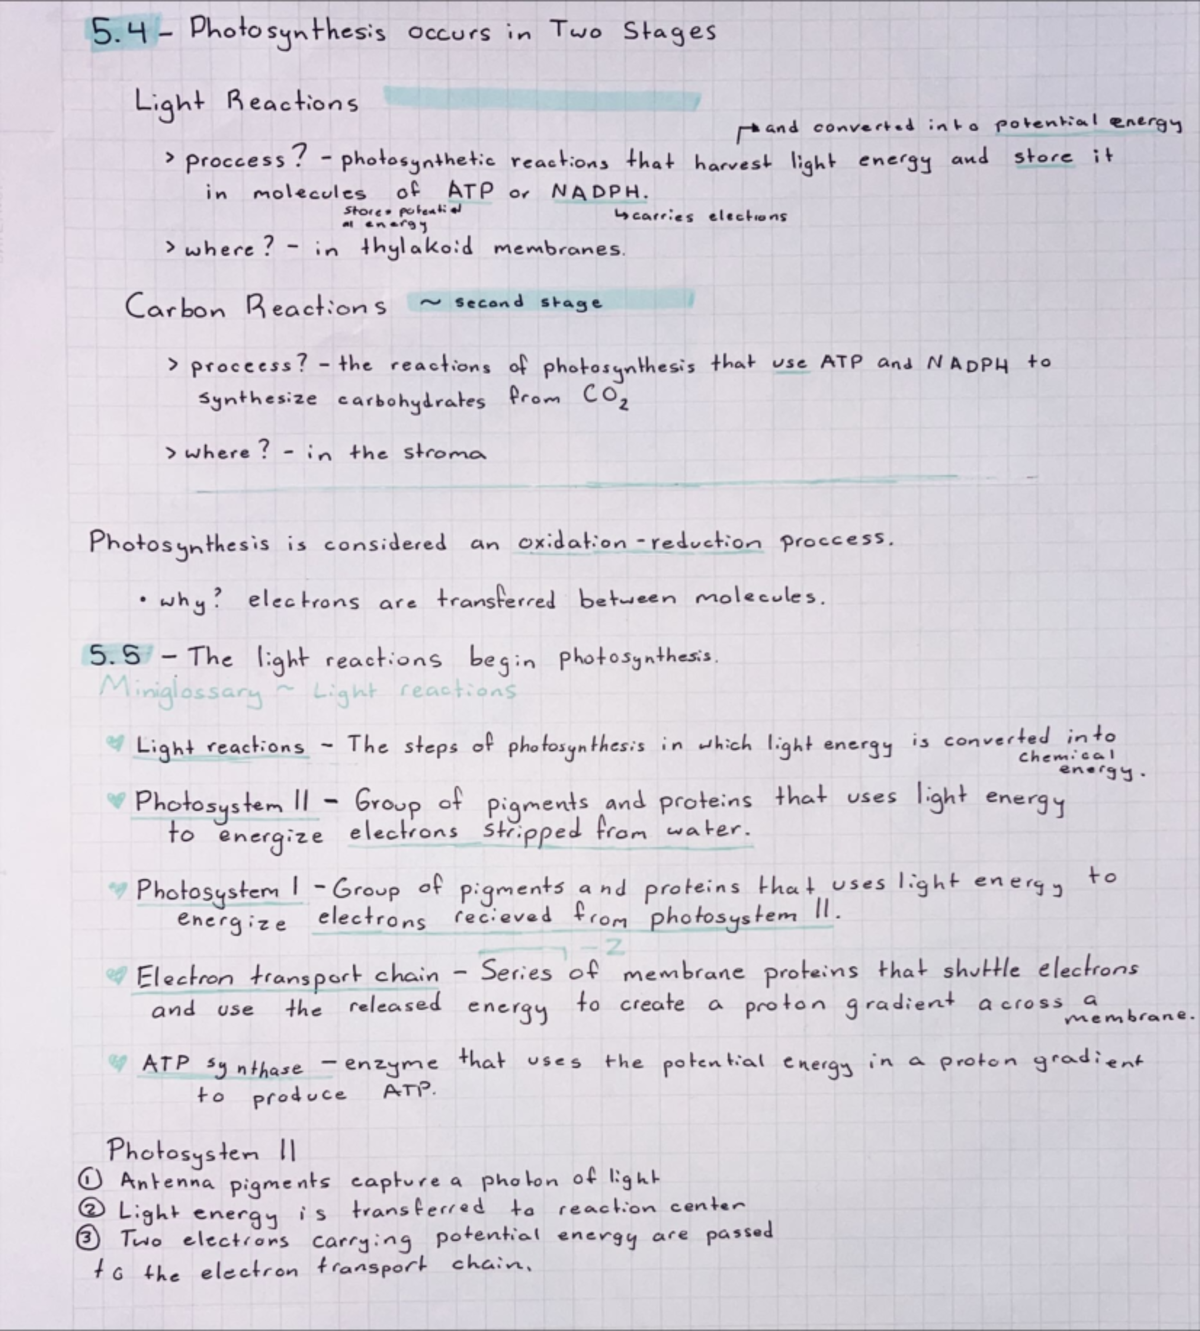 5.4 - Photosynthesis occurs in Two Stages
Light Reactions
↱ and converted into potential energy
> proccess? - photosynthetic reactions that harvest light energy and store it
in molecules of ATP or NADPH.
potential
energy
↳ carries elections
> where? - in thylakoid membranes.
Carbon Reactions ~ second stage
> proccess? - the reactions of photosynthesis that use ATP and NADPH to
synthesize carbohydrates from CO₂
> where? - in the stroma
Photosynthesis is considered an oxidation-reduction proccess.
• why? electrons are transferred between molecules.
5.5 - The light reactions begin photosynthesis.
Miniglossary ~ Light reactions
Light reactions - The steps of photosynthesis in which light energy is converted into
chemical
energy.
Photosystem II - Group of pigments and proteins that uses light energy
to energize electrons stripped from water.
Photosystem I - Group of pigments and proteins that uses light energy to
energize electrons recieved from photosystem II.
Electron transport chain - Series of membrane proteins that shuttle electrons
and use the released energy to create a proton gradient across a
membrane.
ATP synthase - enzyme that uses the potential energy in a proton gradient
to produce ATP.
Photosystem II
① Antenna pigments capture a photon of light
② Light energy is transferred to reaction center
③ Two electrons carrying potential energy are passed
to the electron transport chain.